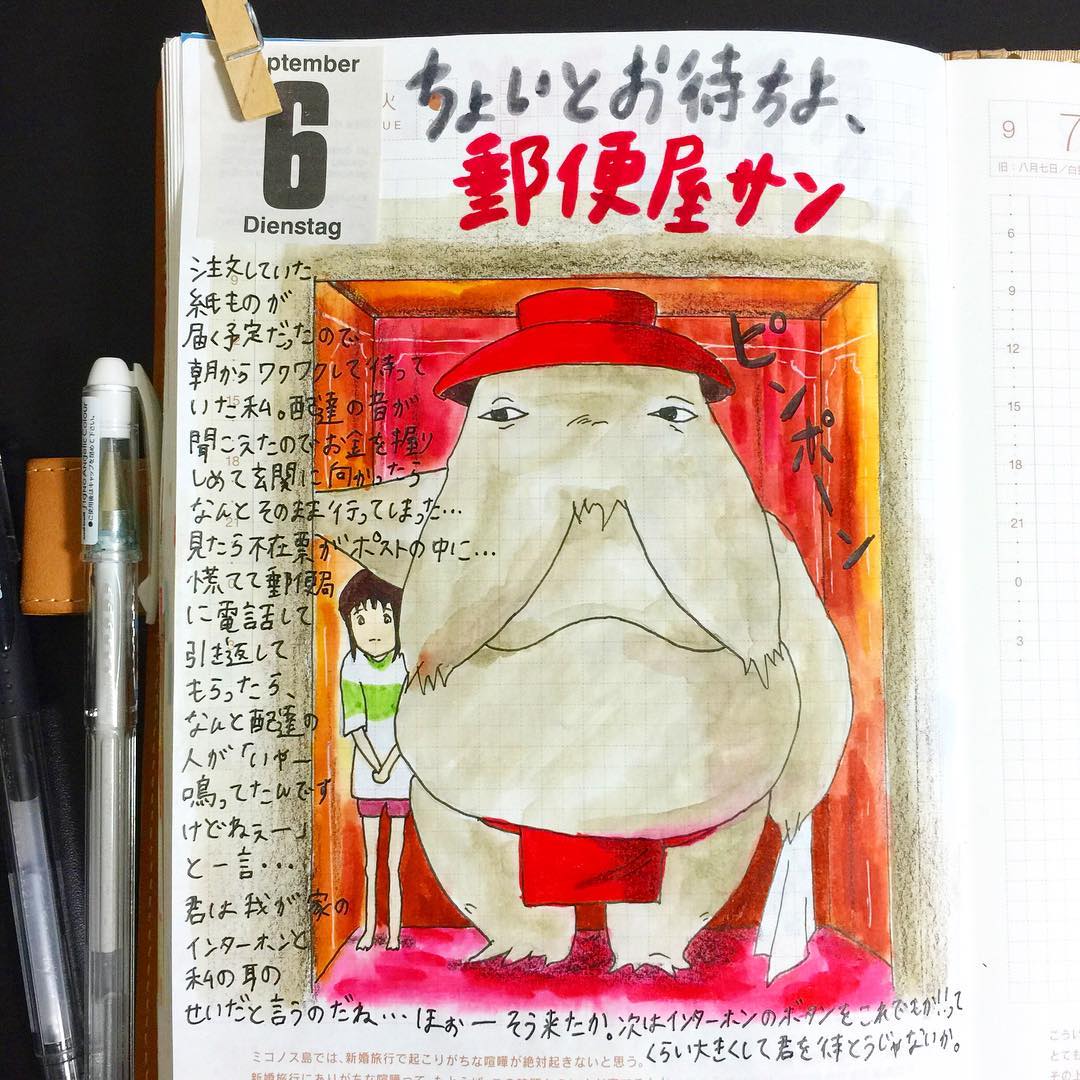 ptember
6
Dienstag
火
UE
ちょいとお待ちよ、
郵便屋サン
ピンポーン
注文していた
紙ものが
届く予定だったので
朝からワクワクして待って
いた私。配達の音が
聞こえたのでお金を握り
しめて玄関に向かったら
なんとそのまま行ってしまった…
見たら不在票がポストの中に…
慌てて郵便局
に電話して
引き返して
もらったら、
なんと配達の
人が「いやー
鳴ってたんです
けどねぇー」
と一言・・・・
君は我が家の
インターホンと
私の耳の
せいだと言うのだね…ほぉーそう来たか。次はインターホンのボタンをこれでもか!!って
くらい大きくして君を待とうじゃないか。
ミコノス島では、新婚旅行で起こりがちな喧嘩が絶対起きないと思う。
9 7
旧：八月七日／白
6
9
12
15
18
21
0
3
9
18
21